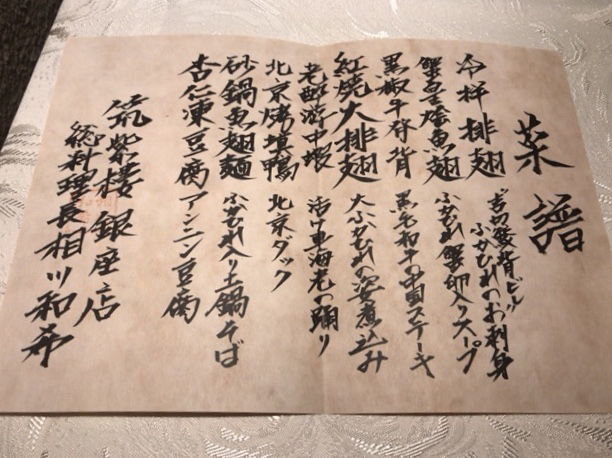 菜譜
冷拌排翅
"吉切鮫背ビレ"
ふかひれのお刺身
蟹皇燴魚翅 ふかひれ蟹卵入りスープ
黒椒牛脊背 黒毛和牛の中国ステーキ
紅焼大排翅 大ふかひれの姿煮込み
老酔游中蝦 活け車海老の踊り
北京烤填鴨 北京ダック
砂鍋魚翅麺 ふかひれ入り土鍋そば
杏仁凍豆腐 アンニン豆腐
筑紫樓 銀座店
総料理長 相川和希